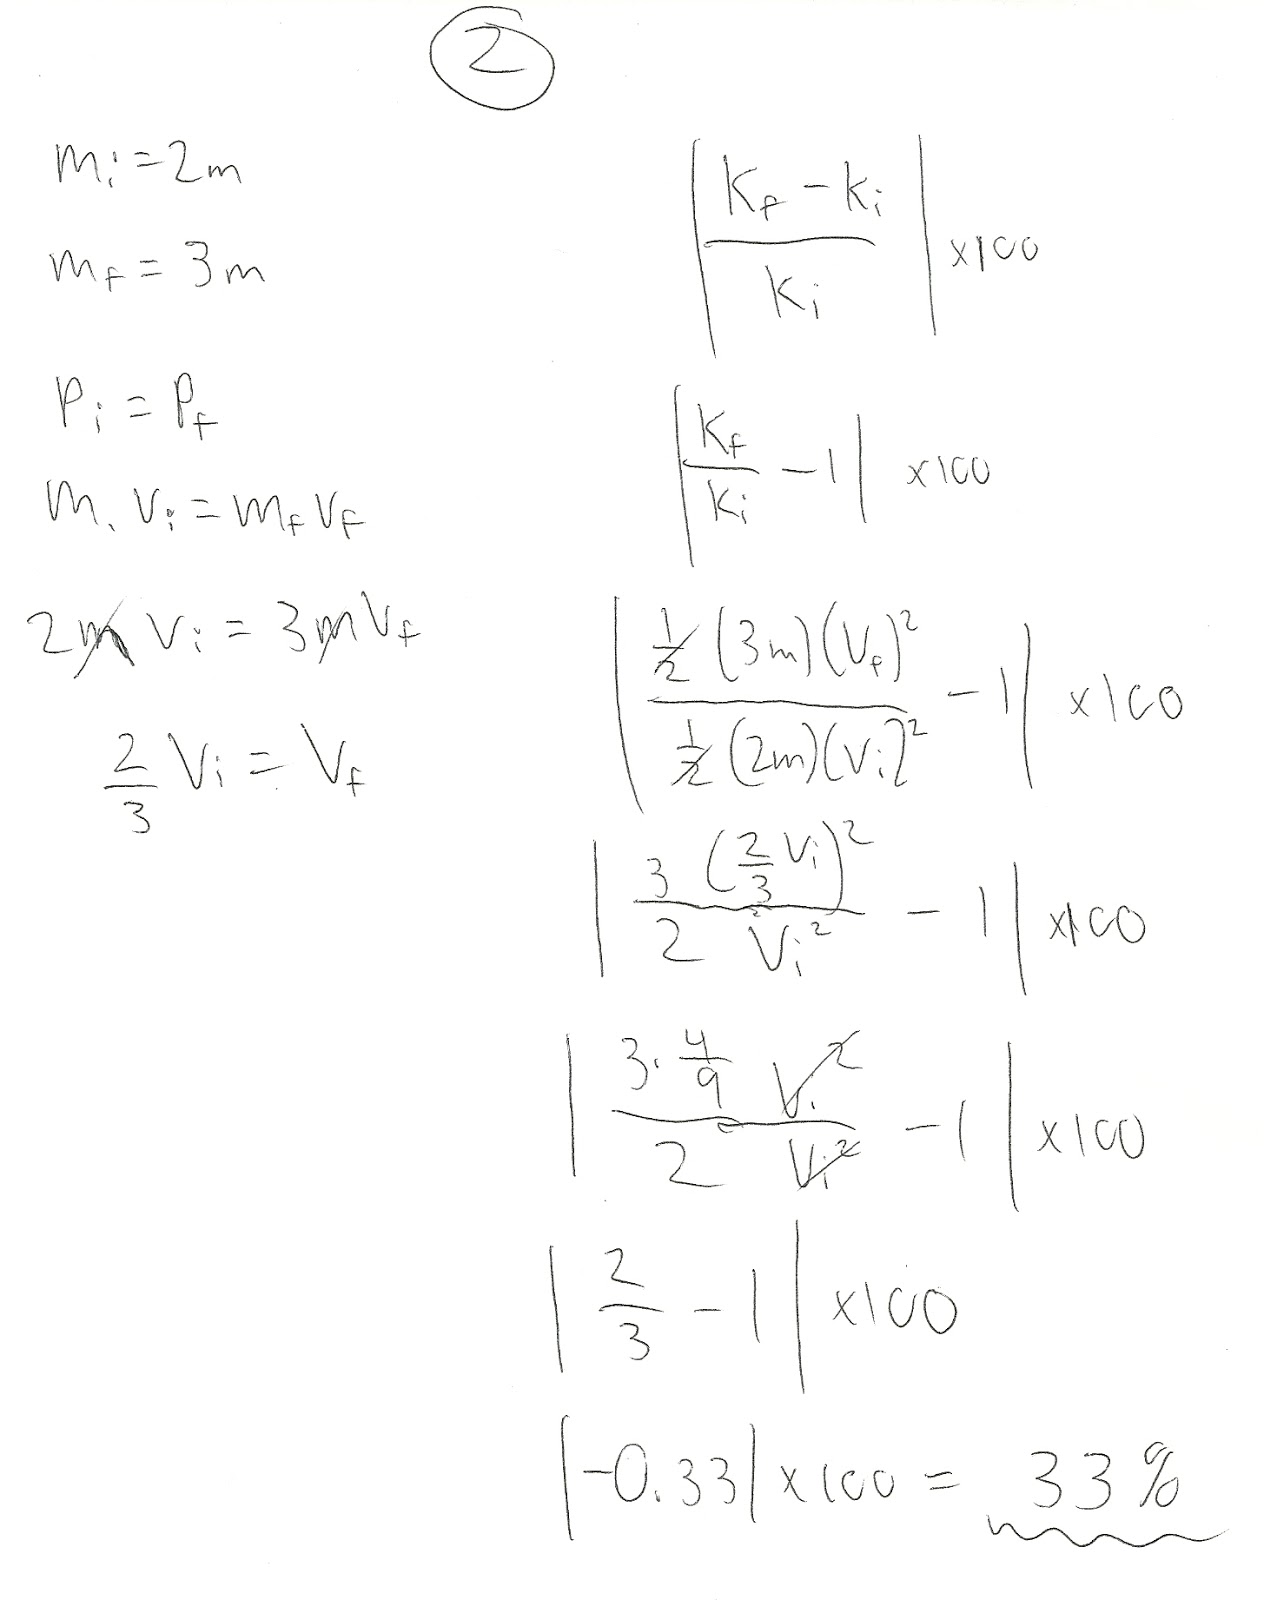 2
mi = 2m
mf = 3m
Pi = Pf
mi Vi = mf Vf
2m Vi = 3m Vf
2/3 Vi = Vf
|(Kf - Ki)/Ki| x100
|Kf/Ki - 1| x100
|(1/2 (3m)(Vf)²)/(1/2 (2m)(Vi)²) - 1| x100
|(3 (2/3 Vi)²)/(2 Vi²) - 1| x100
|(3·4/9 Vi²)/(2 Vi²) - 1| x100
|2/3 - 1| x100
|-0.33| x100 = 33%